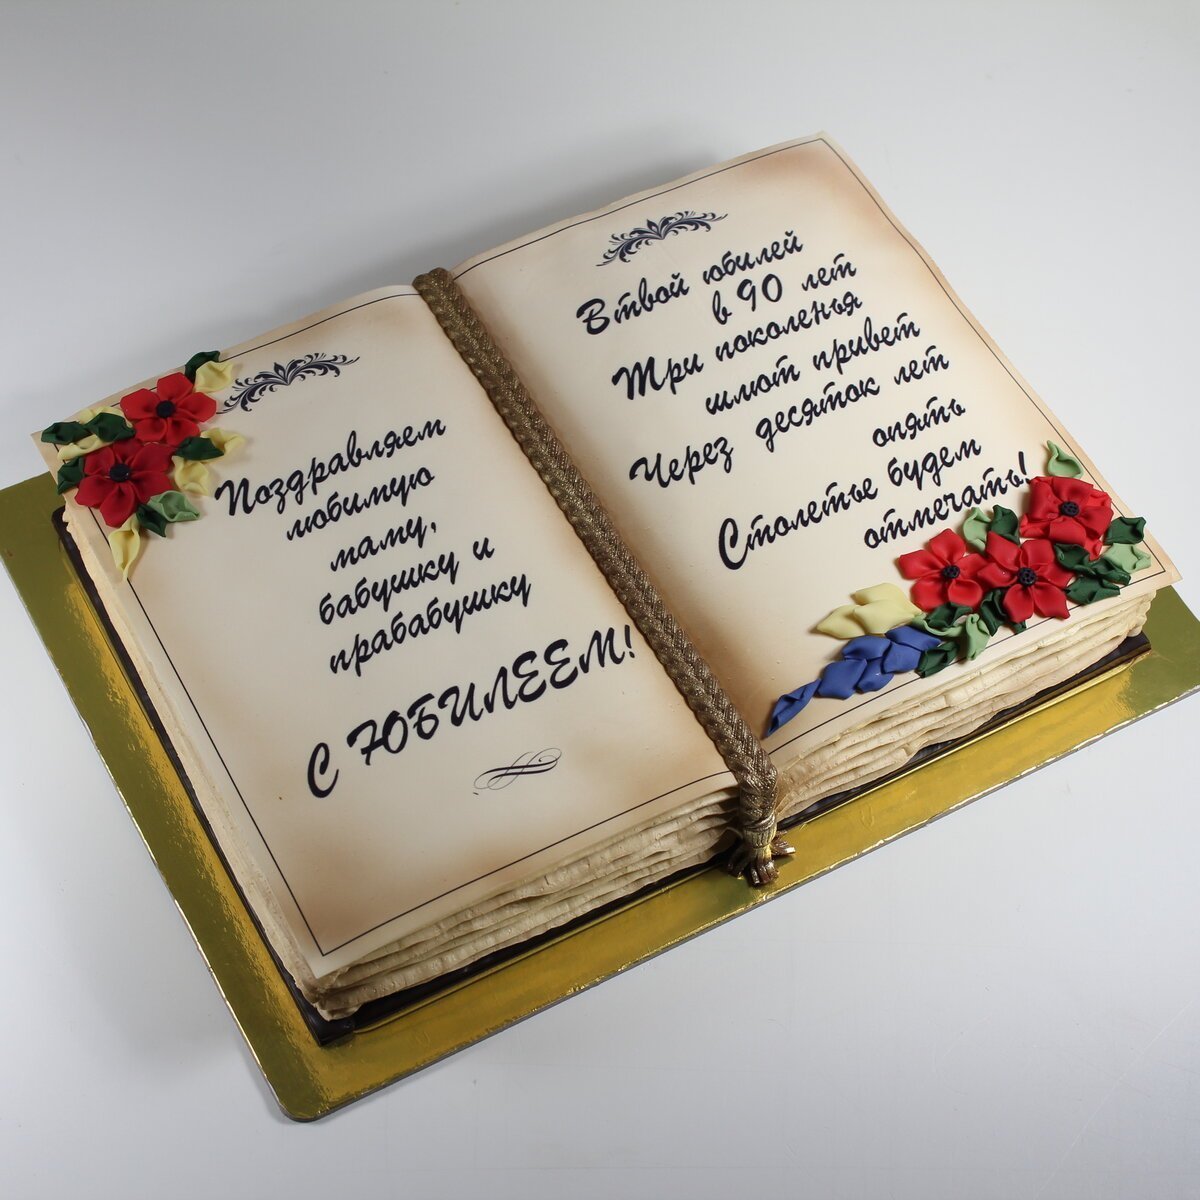 Поздравляем
любимую
маму,
бабушку и
прабабушку
С ЮБИЛЕЕМ!
В твой юбилей
в 90 лет
Три поколенья
шлют привет
Через десяток лет
опять
Столетье будем
отмечать!